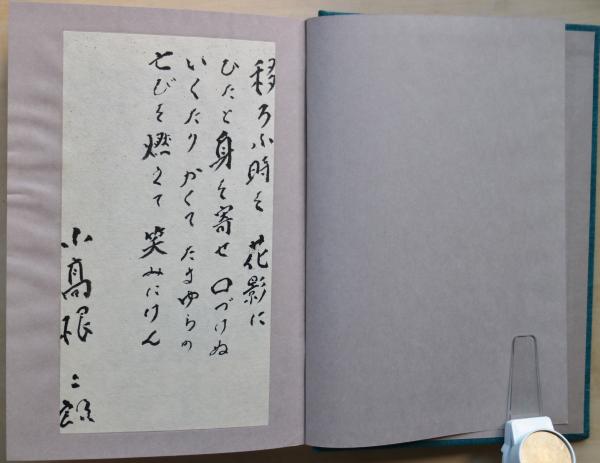 移ろふ時を 花影に
ひたと身を寄せ 口づけぬ
いくたり かくて たまゆらの
燃えて 笑みにけん
小高根二郎